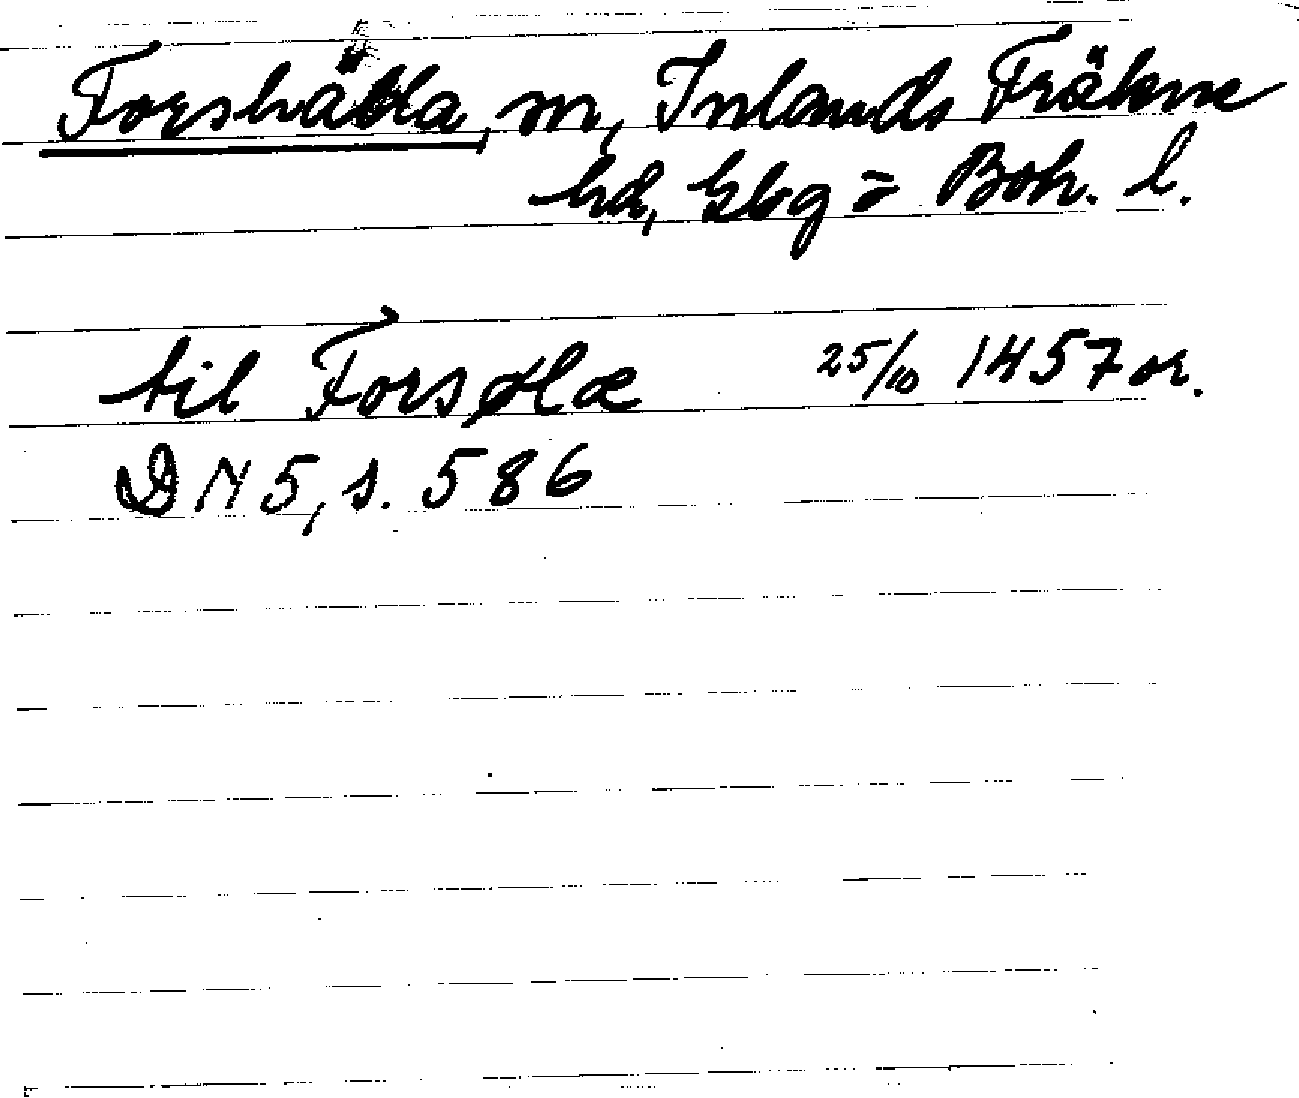 Forshälla, m, Inlands Fräkne
hd, Gbg o Boh. l.
til Forsøla 25/10 1457 or.
DN 5, s. 586